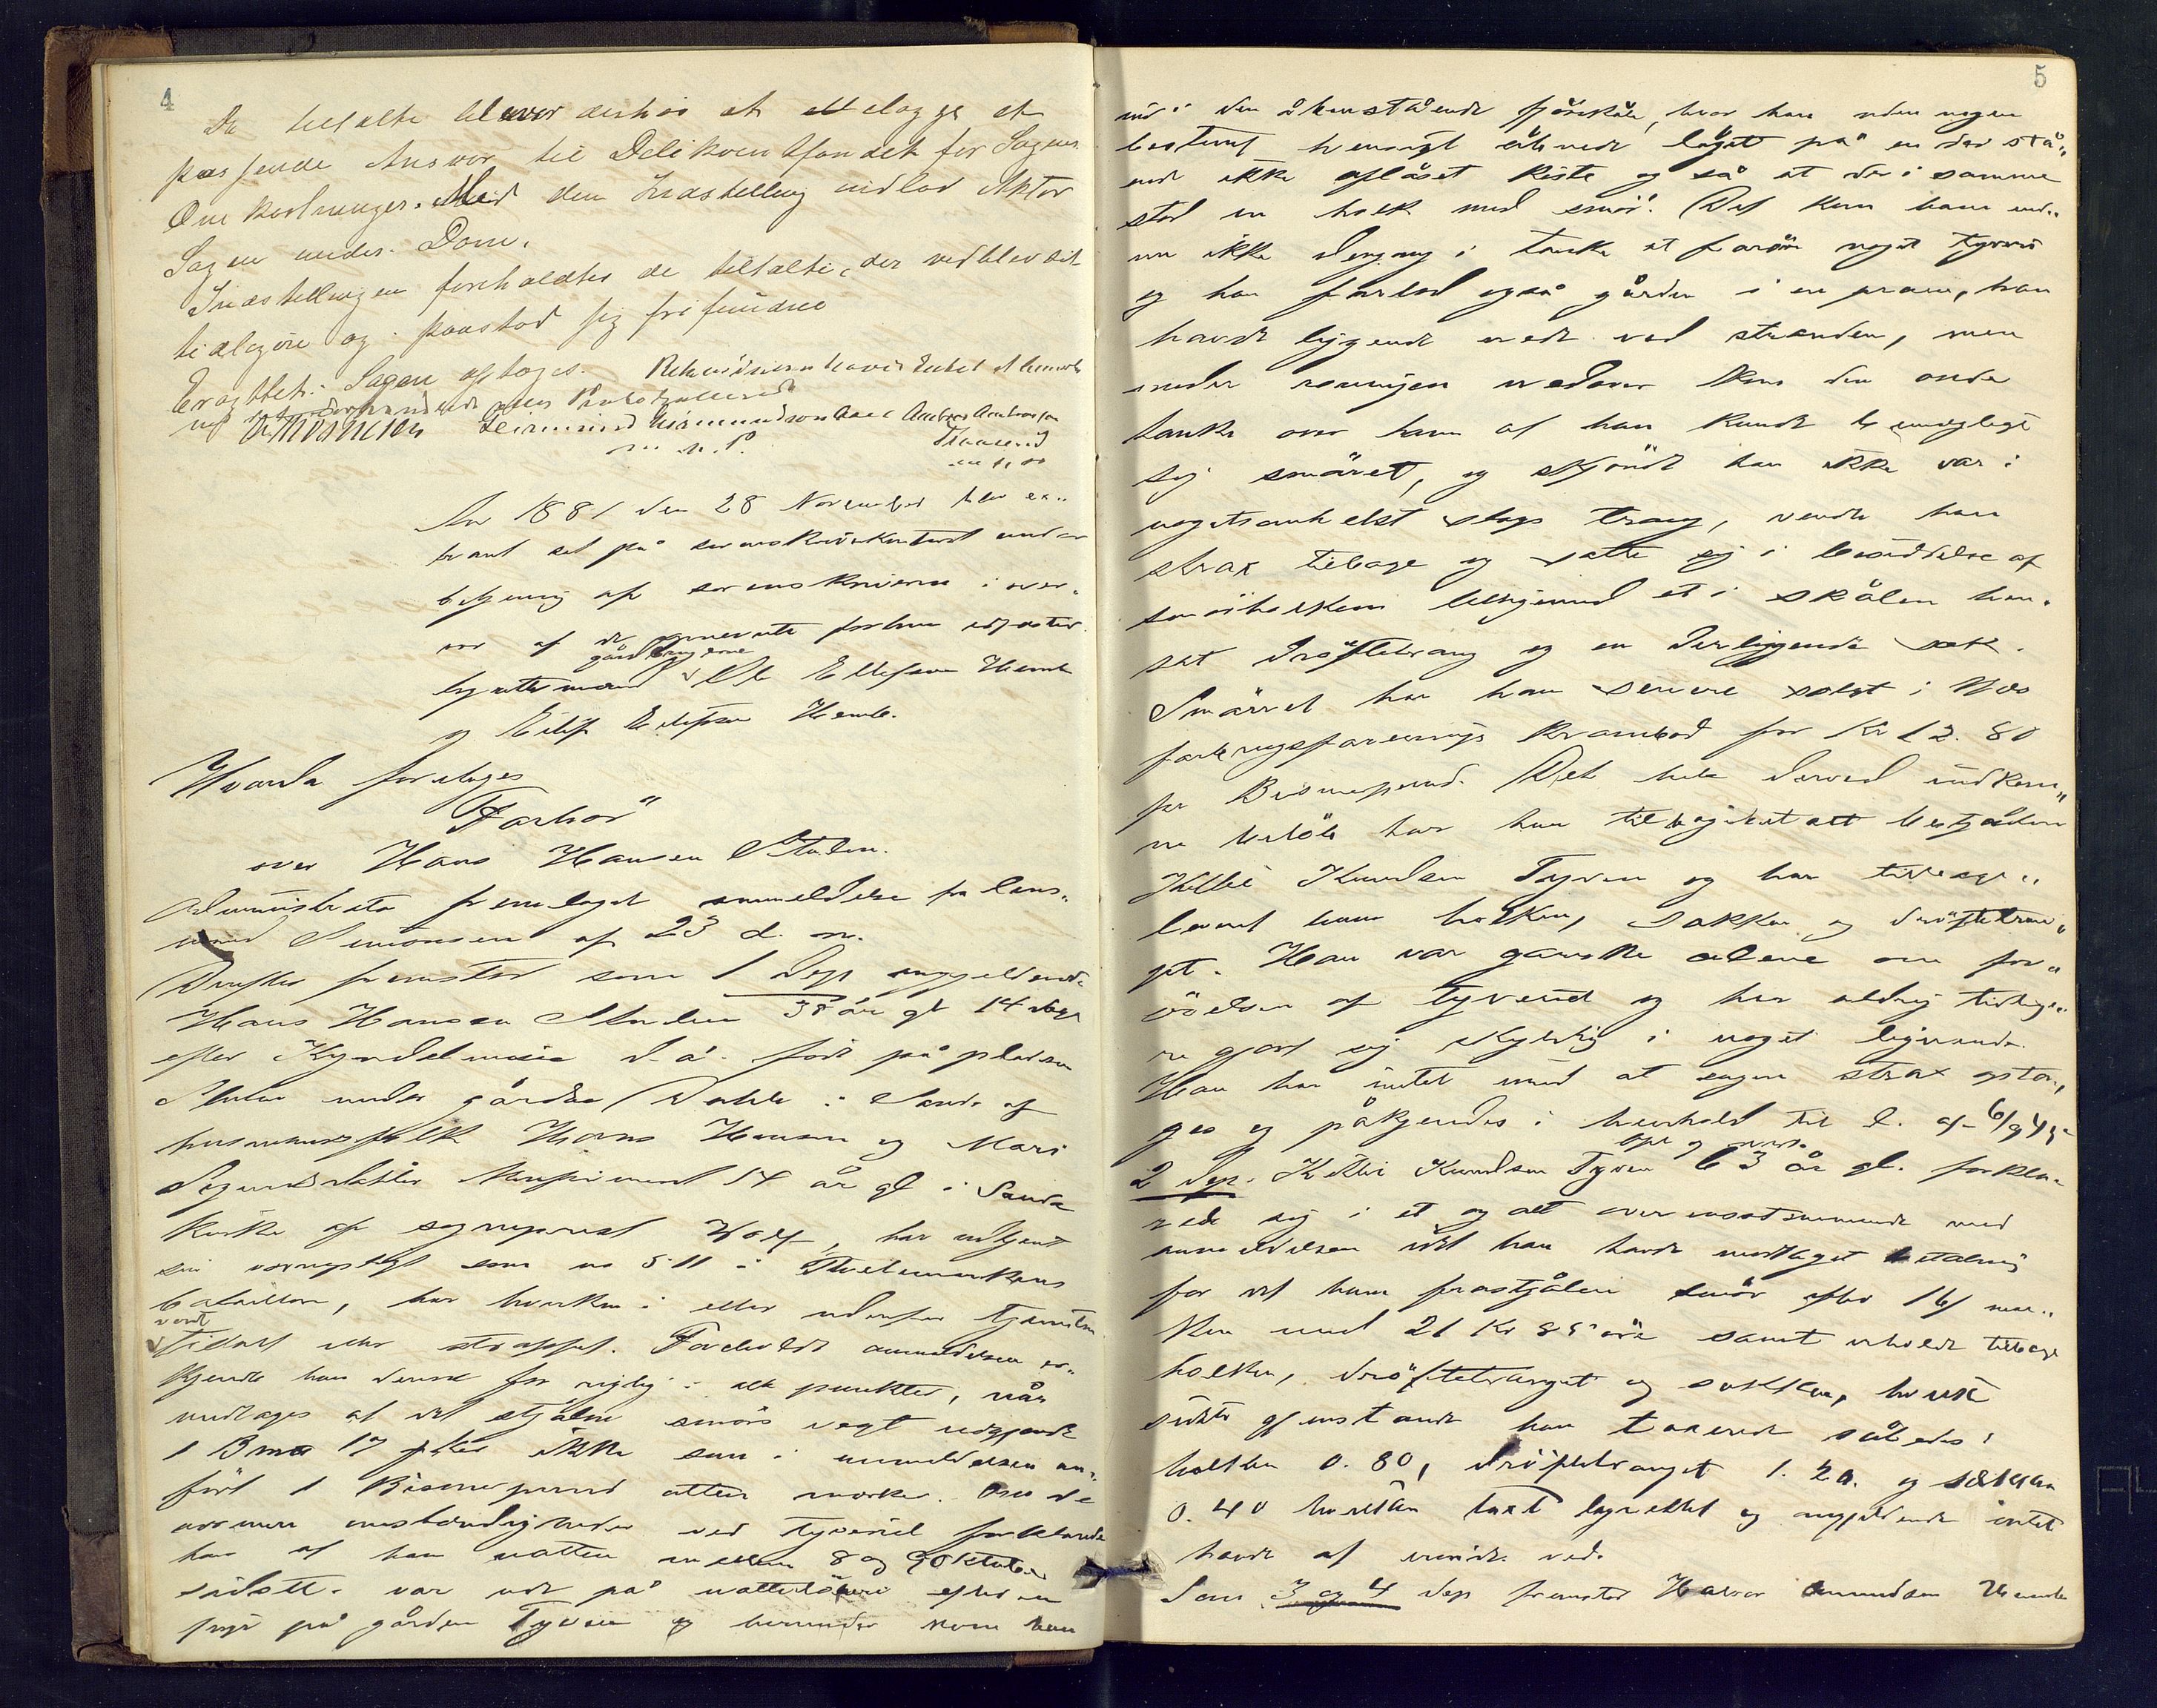 4
De tiltalte bliver derhos at ilægge et
passende Ansvar til Delikventfondet for Sagens
Omkostninger. Med den Indstilling indlod Aktor
Sagen under Dom.
Indstillingen foreholdtes de tiltalte, der vedblev sit
tidligere og paastod sig frifundne
Eragtet: Sagen optages.
An 1881 den 28 November blev ex-
traret sat på sorenskriverkontoret under
betjening af sorenskriveren i over-
vær af de opnævnte forhen edfæstede
gårdbrugerne
lagrettesmænd Ole Ellefsen Hemle
og Eilif Eilifsen Hemle.
Hvorda foretoges
Forhør
over Hans Hansen Stulen.
Administrator fremlagde anmeldelse fra lens-
mand Simonsen af 23 d. m.
Derefter fremstod som 1 Dep angjeldende
Hans Hansen Stulen 38 år gl 14 dage
efter Kyndelmisse d. å. født på pladsen
Stulen under gården Dahle i Sande af
husmandsfolk Hans Hansen og Mari
Sigurdsdatter konfirmeret 14 år gl i Sauda
kirke af sogneprest Wolff, har udtjent
sin værnepligt som no 511 i Thelemarkens
bataillon, har hverken i eller udenfor tjenesten
vært
tiltalt eller straffet. Foreholdt anmeldelsen er-
kjendte han denne for rigtig i alle punkter, når
undtages at det stjålne smørs vegt udgjorde
1 Bmp 17 mker ikke som i anmeldelsen an-
ført 1 Bismerpund otten marker. Om de
nærmere omstændigheder ved tyveriet forklarede
han at han natten mellem 8 og 9 Oktober
sidstl. var ude på natteløberi efter en
pige på gården Tyven og herunder kom han
5
ind i den åbenstående skåle, hvor han uden nogen
bestemt hensigt åbnede låget på en der stå-
ende ikke aflåset kiste og så at der i samme
stod en holk med smør. Det kom ham end-
nu ikke dengang i tanke at forøve noget tyveri
og han forlod også gården i en pram, han
havde liggende nede ved stranden, men
under roningen nedover kom den onde
tanke over ham at han kunde bemægtige
sig smøret, og skjøndt han ikke var i
nogetsomhelst slags trang, vendte han
strax tilbage og satte sig i besiddelse af
smørholken tilligemed et i skålen hen-
sat drøftetraug og en derliggende sæk.
Smørret har han senere solgt i Næs
forbrugsforenings krambod for Kr 12.80
pr Bismerpund. Det hele derved indkom-
ne beløb har han tilbagebetalt bestjålne
Kittil Knudsen Tyven og har tilbage-
leveret ham holken, sækken og drøftetrau-
get. Han var ganske alene om for-
øvelsen af tyveriet og har aldrig tidlige-
re gjort sig skyldig i noget lignende.
Han har intet imod at sagen strax opta-
ges og påkjendes i henhold til l. af 6/9 45
2 Dep. Kittil Knudsen Tyven 63 år gl. forkla-
rede sig i et og alt overensstemmende med
anmeldelsen idet han havde modtaget betaling
for det ham frastjålne smør efter 161 mar-
ker med 21 Kr 85 øre samt erholdt tilbage
holken, drøftetrauget og sækken, hvilke
sidste gjenstande han taxerede således:
holken 0.80, drøftetrauget 1.20. og sækken
0.40 hvilken taxt lagrettet og angjeldende intet
havde at erindre ved.
Som 3 og 4 Dep fremstod Halvor Amundsen Hemle